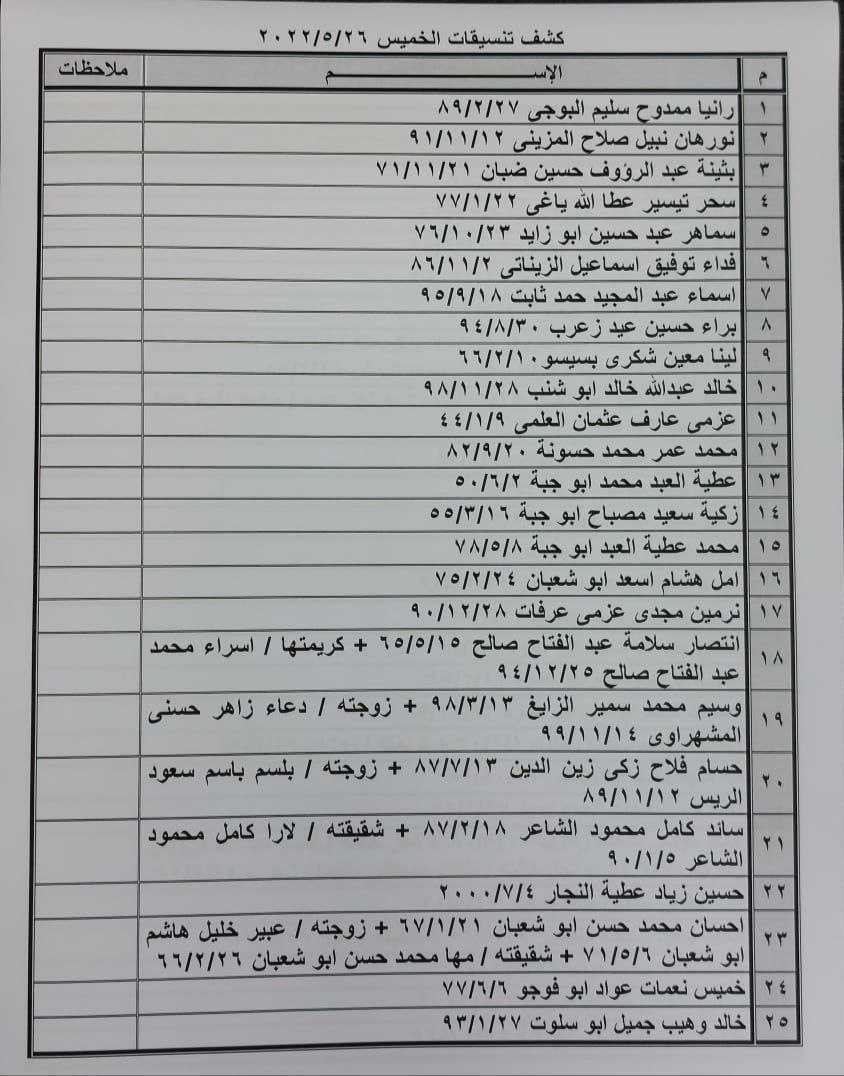 كشف تنسيقات الخميس ٢٠٢٢/٥/٢٦
م الإســـــــــــــم ملاحظات
١ رانيا ممدوح سليم البوجى ٨٩/٢/٢٧
٢ نورهان نبيل صلاح المزينى ٩١/١١/١٢
٣ بثينة عبد الرؤوف حسين ضبان ٧١/١١/٢١
٤ سحر تيسير عطا الله ياغى ٧٧/١/٢٢
٥ سماهر عبد حسين ابو زايد ٧٦/١٠/٢٣
٦ فداء توفيق اسماعيل الزيناتى ٨٦/١١/٢
٧ اسماء عبد المجيد حمد ثابت ٩٥/٩/١٨
٨ براء حسين عيد زعرب ٩٤/٨/٣٠
٩ لينا معين شكرى بسيسو ٦٦/٢/١٠
١٠ خالد عبدالله خالد ابو شنب ٩٨/١١/٢٨
١١ عزمى عارف عثمان العلمى ٤٤/١/٩
١٢ محمد عمر محمد حسونة ٨٢/٩/٢٠
١٣ عطية العبد محمد ابو جبة ٥٠/٦/٢
١٤ زكية سعيد مصباح ابو جبة ٥٥/٣/١٦
١٥ محمد عطية العبد ابو جبة ٧٨/٥/٨
١٦ امل هشام اسعد ابو شعبان ٧٥/٢/٢٤
١٧ نرمين مجدى عزمى عرفات ٩٠/١٢/٢٨
١٨ انتصار سلامة عبد الفتاح صالح ٦٥/٥/١٥ + كريمتها / اسراء محمد
عبد الفتاح صالح ٩٤/١٢/٢٥
١٩ وسيم محمد سمير الزايغ ٩٨/٣/١٣ + زوجته / دعاء زاهر حسنى
المشهراوى ٩٩/١١/١٤
٢٠ حسام فلاح زكى زين الدين ٨٧/٧/١٣ + زوجته / بلسم باسم سعود
الريس ٨٩/١١/١٢
٢١ سائد كامل محمود الشاعر ٨٧/٢/١٨ + شقيقته / لارا كامل محمود
الشاعر ٩٠/١/٥
٢٢ حسين زياد عطية النجار ٢٠٠٠/٧/٤
٢٣ احسان محمد حسن ابو شعبان ٦٧/١/٢١ + زوجته / عبير خليل هاشم
ابو شعبان ٧١/٥/٦ + شقيقته / مها محمد حسن ابو شعبان ٦٦/٢/٢٦
٢٤ خميس نعمات عواد ابو فوجو ٧٧/٦/٦
٢٥ خالد وهيب جميل ابو سلوت ٩٣/١/٢٧